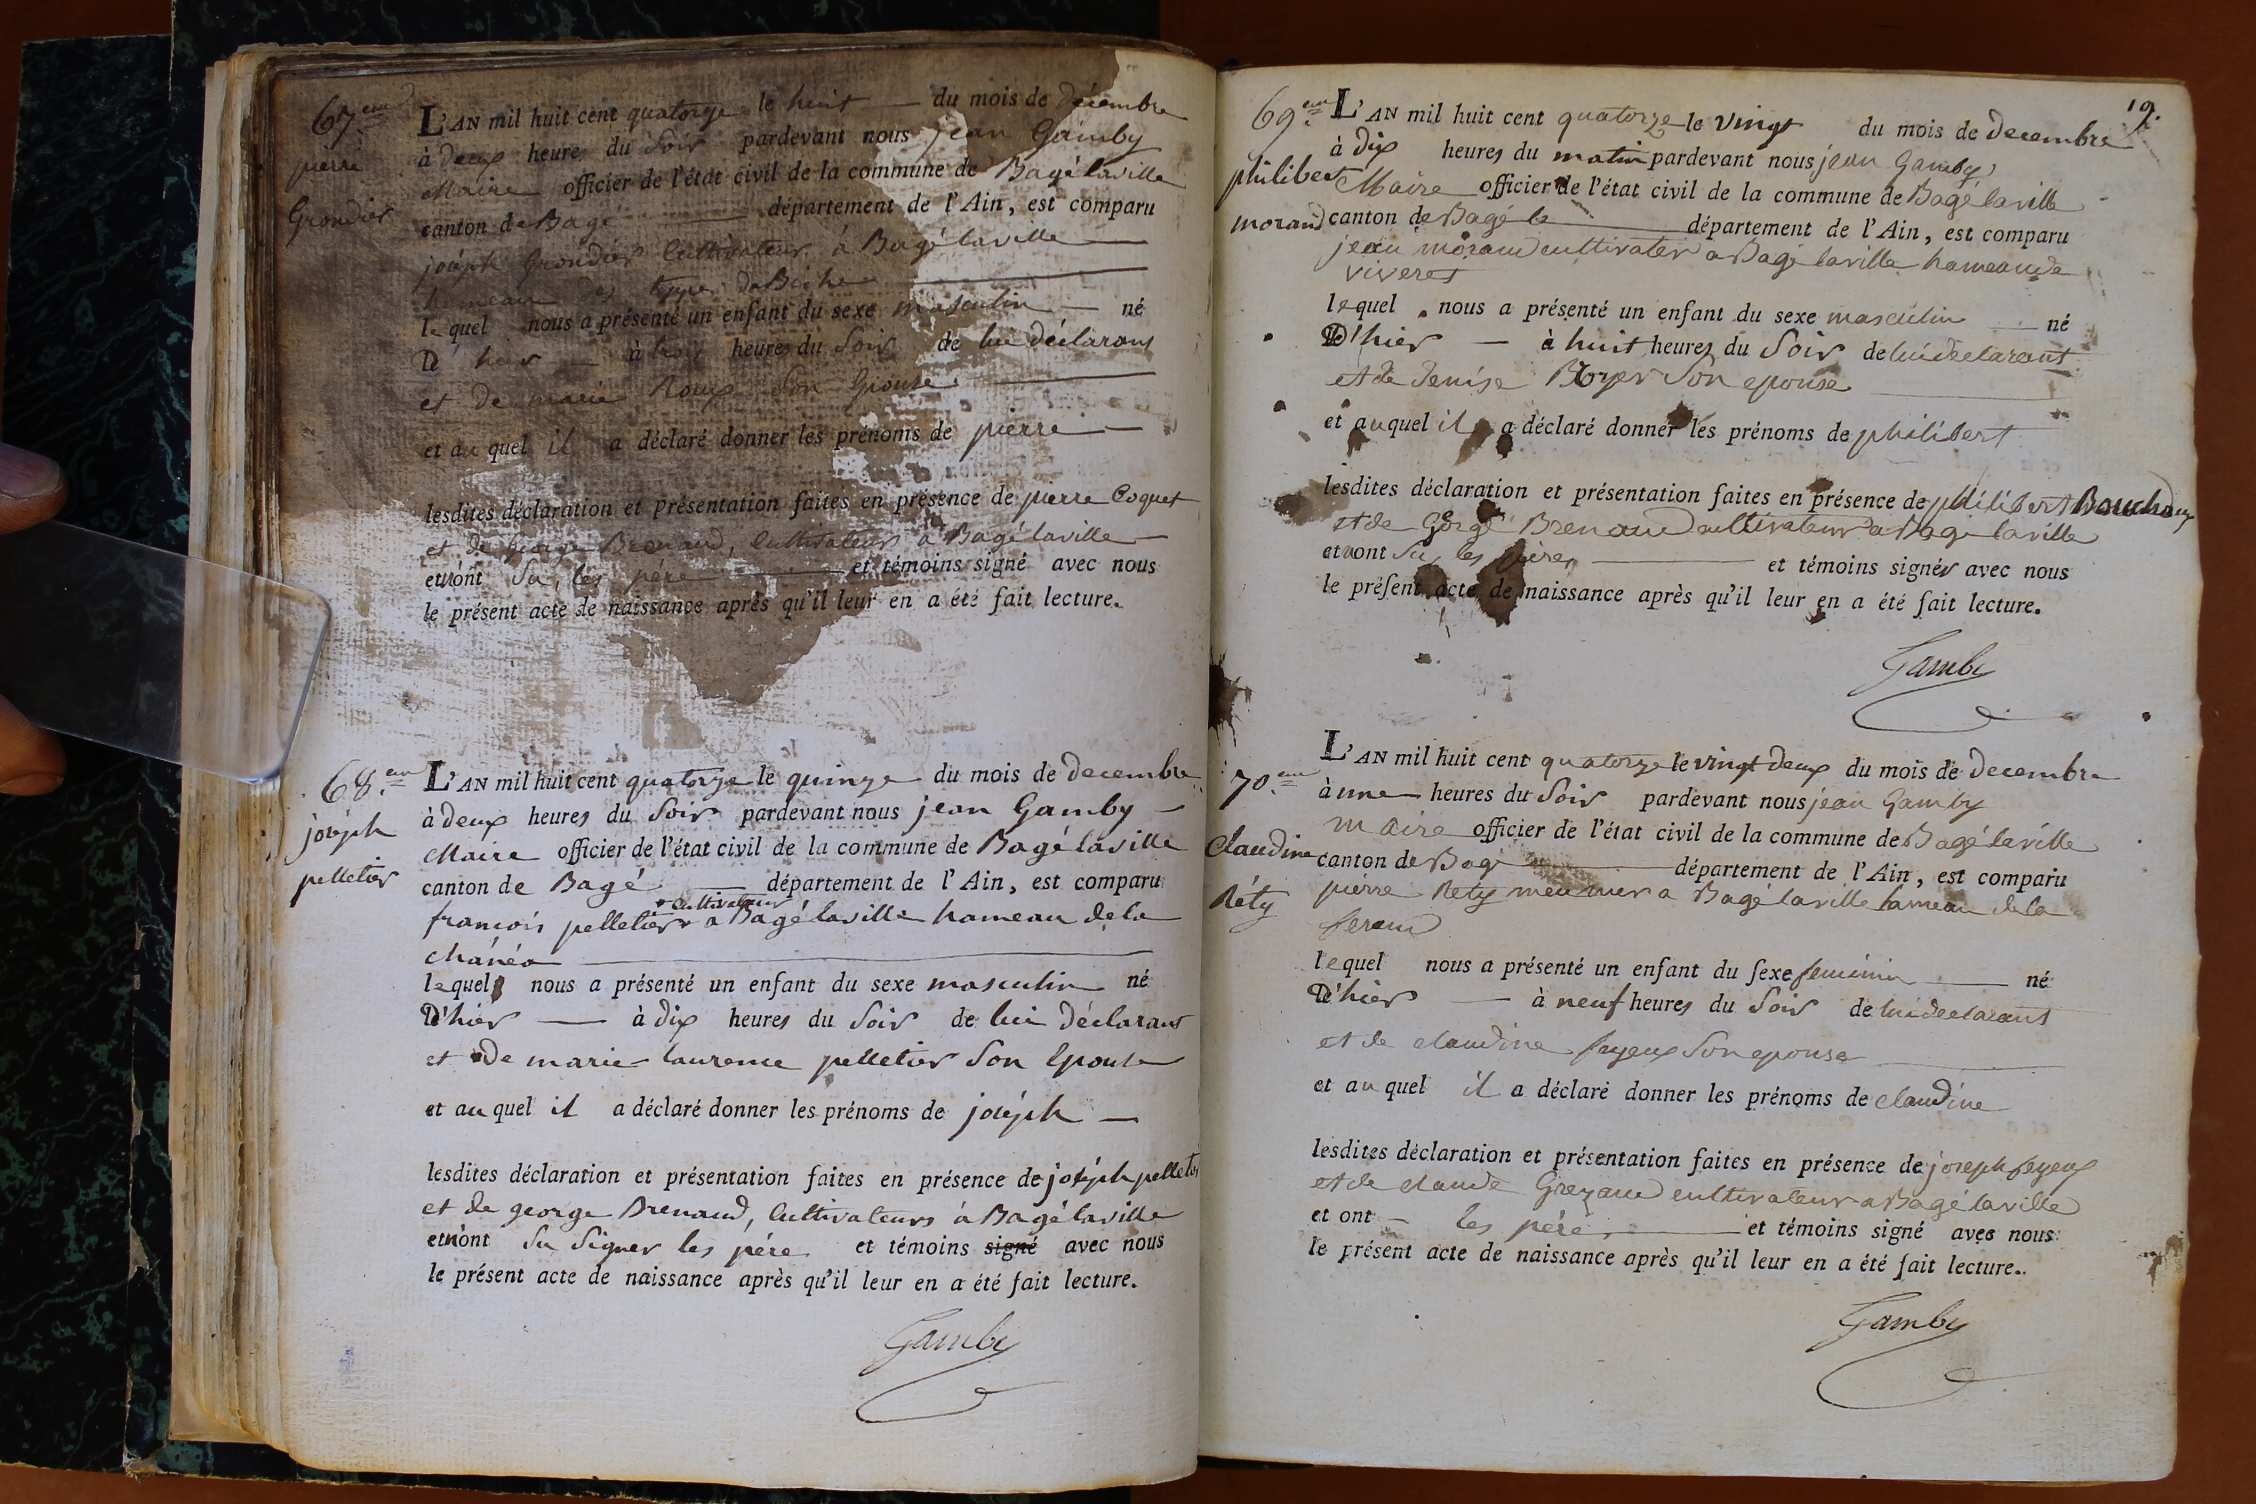 67.eme
pierre
Grondier
L'AN mil huit cent quatorze le huit du mois de décembre
à deux heures du Soir pardevant nous jean Gamby
Maire officier de l'état civil de la commune de Bagé laville
canton de Bagé département de l'Ain, est comparu
joséph Grondier Cultivateur à Bagé laville
lequel nous a présenté un enfant du sexe masculin né
D'hier à trois heures du Soir de lui déclarant
et de marie Roux Son Epouse
et au quel il a déclaré donner les prénoms de pierre
lesdites déclaration et présentation faites en présence de pierre Coquet
et de george Brenaud, Cultivateurs à Bagé laville
et n'ont Su, les pére et témoins signé avec nous
le présent acte de naissance après qu'il leur en a été fait lecture.
68.eme
joséph
pelletier
L'AN mil huit cent quatorze le quinze du mois de decembre
à deux heures du Soir pardevant nous jean Gamby
Maire officier de l'état civil de la commune de Bagé laville
canton de Bagé département de l'Ain, est comparu
cultivateur
francois pelletier a Bagé laville hameau de la
chanéa
lequel nous a présenté un enfant du sexe masculin né
D'hier à dix heures du Soir de lui déclarant
et de marie laurence pelletier Son Epouse
et au quel il a déclaré donner les prénoms de joséph
lesdites déclaration et présentation faites en présence de joséph pelletier
et de george Brenaud, Cultivateurs à Bagé laville
et n'ont Su Signer les pére et témoins signé avec nous
le présent acte de naissance après qu'il leur en a été fait lecture.
Gamby
19.
69.eme
philibert
morand
L'AN mil huit cent quatorze le vingt du mois de decembre
à dix heures du matin pardevant nous jean Gamby
Maire officier de l'état civil de la commune de Bagé laville
canton de Bagé le département de l'Ain, est comparu
jean morand cultivater a Bagé laville hameau de
viveres
lequel nous a présenté un enfant du sexe masculin né
D'hier à huit heures du Soir de lui declarant
et de denise Royer Son epouse
et auquel il a déclaré donner les prénoms de philibert
lesdites déclaration et présentation faites en présence de philibert Bouchoux
et de Gorge Brenaud cultivateur a Bagé laville
et n'ont Su, les pères et témoins signér avec nous
le présent acte de naissance après qu'il leur en a été fait lecture.
Gamby
70.eme
Claudine
Réty
L'AN mil huit cent quatorze le vingt deux du mois de decembre
à une heures du Soir pardevant nous jean Gamby
maire officier de l'état civil de la commune de Bagé laville
canton de Bagé département de l'Ain, est comparu
pierre Rety meunier a Bagé laville hameau de la
lequel nous a présenté un enfant du sexe feminin né
D'hier à neuf heures du Soir de lui declarant
et de claudine feyeux Son epouse
et au quel il a déclaré donner les prénoms de claudine
lesdites déclaration et présentation faites en présence de joseph feyeux
et de claude Grezaud cultivateur a Bagé laville
et ont les pére, et témoins signé avec nous
le présent acte de naissance après qu'il leur en a été fait lecture.
Gamby